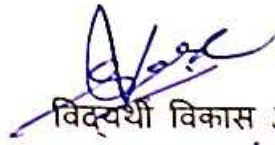 विद्यर्थी विकास